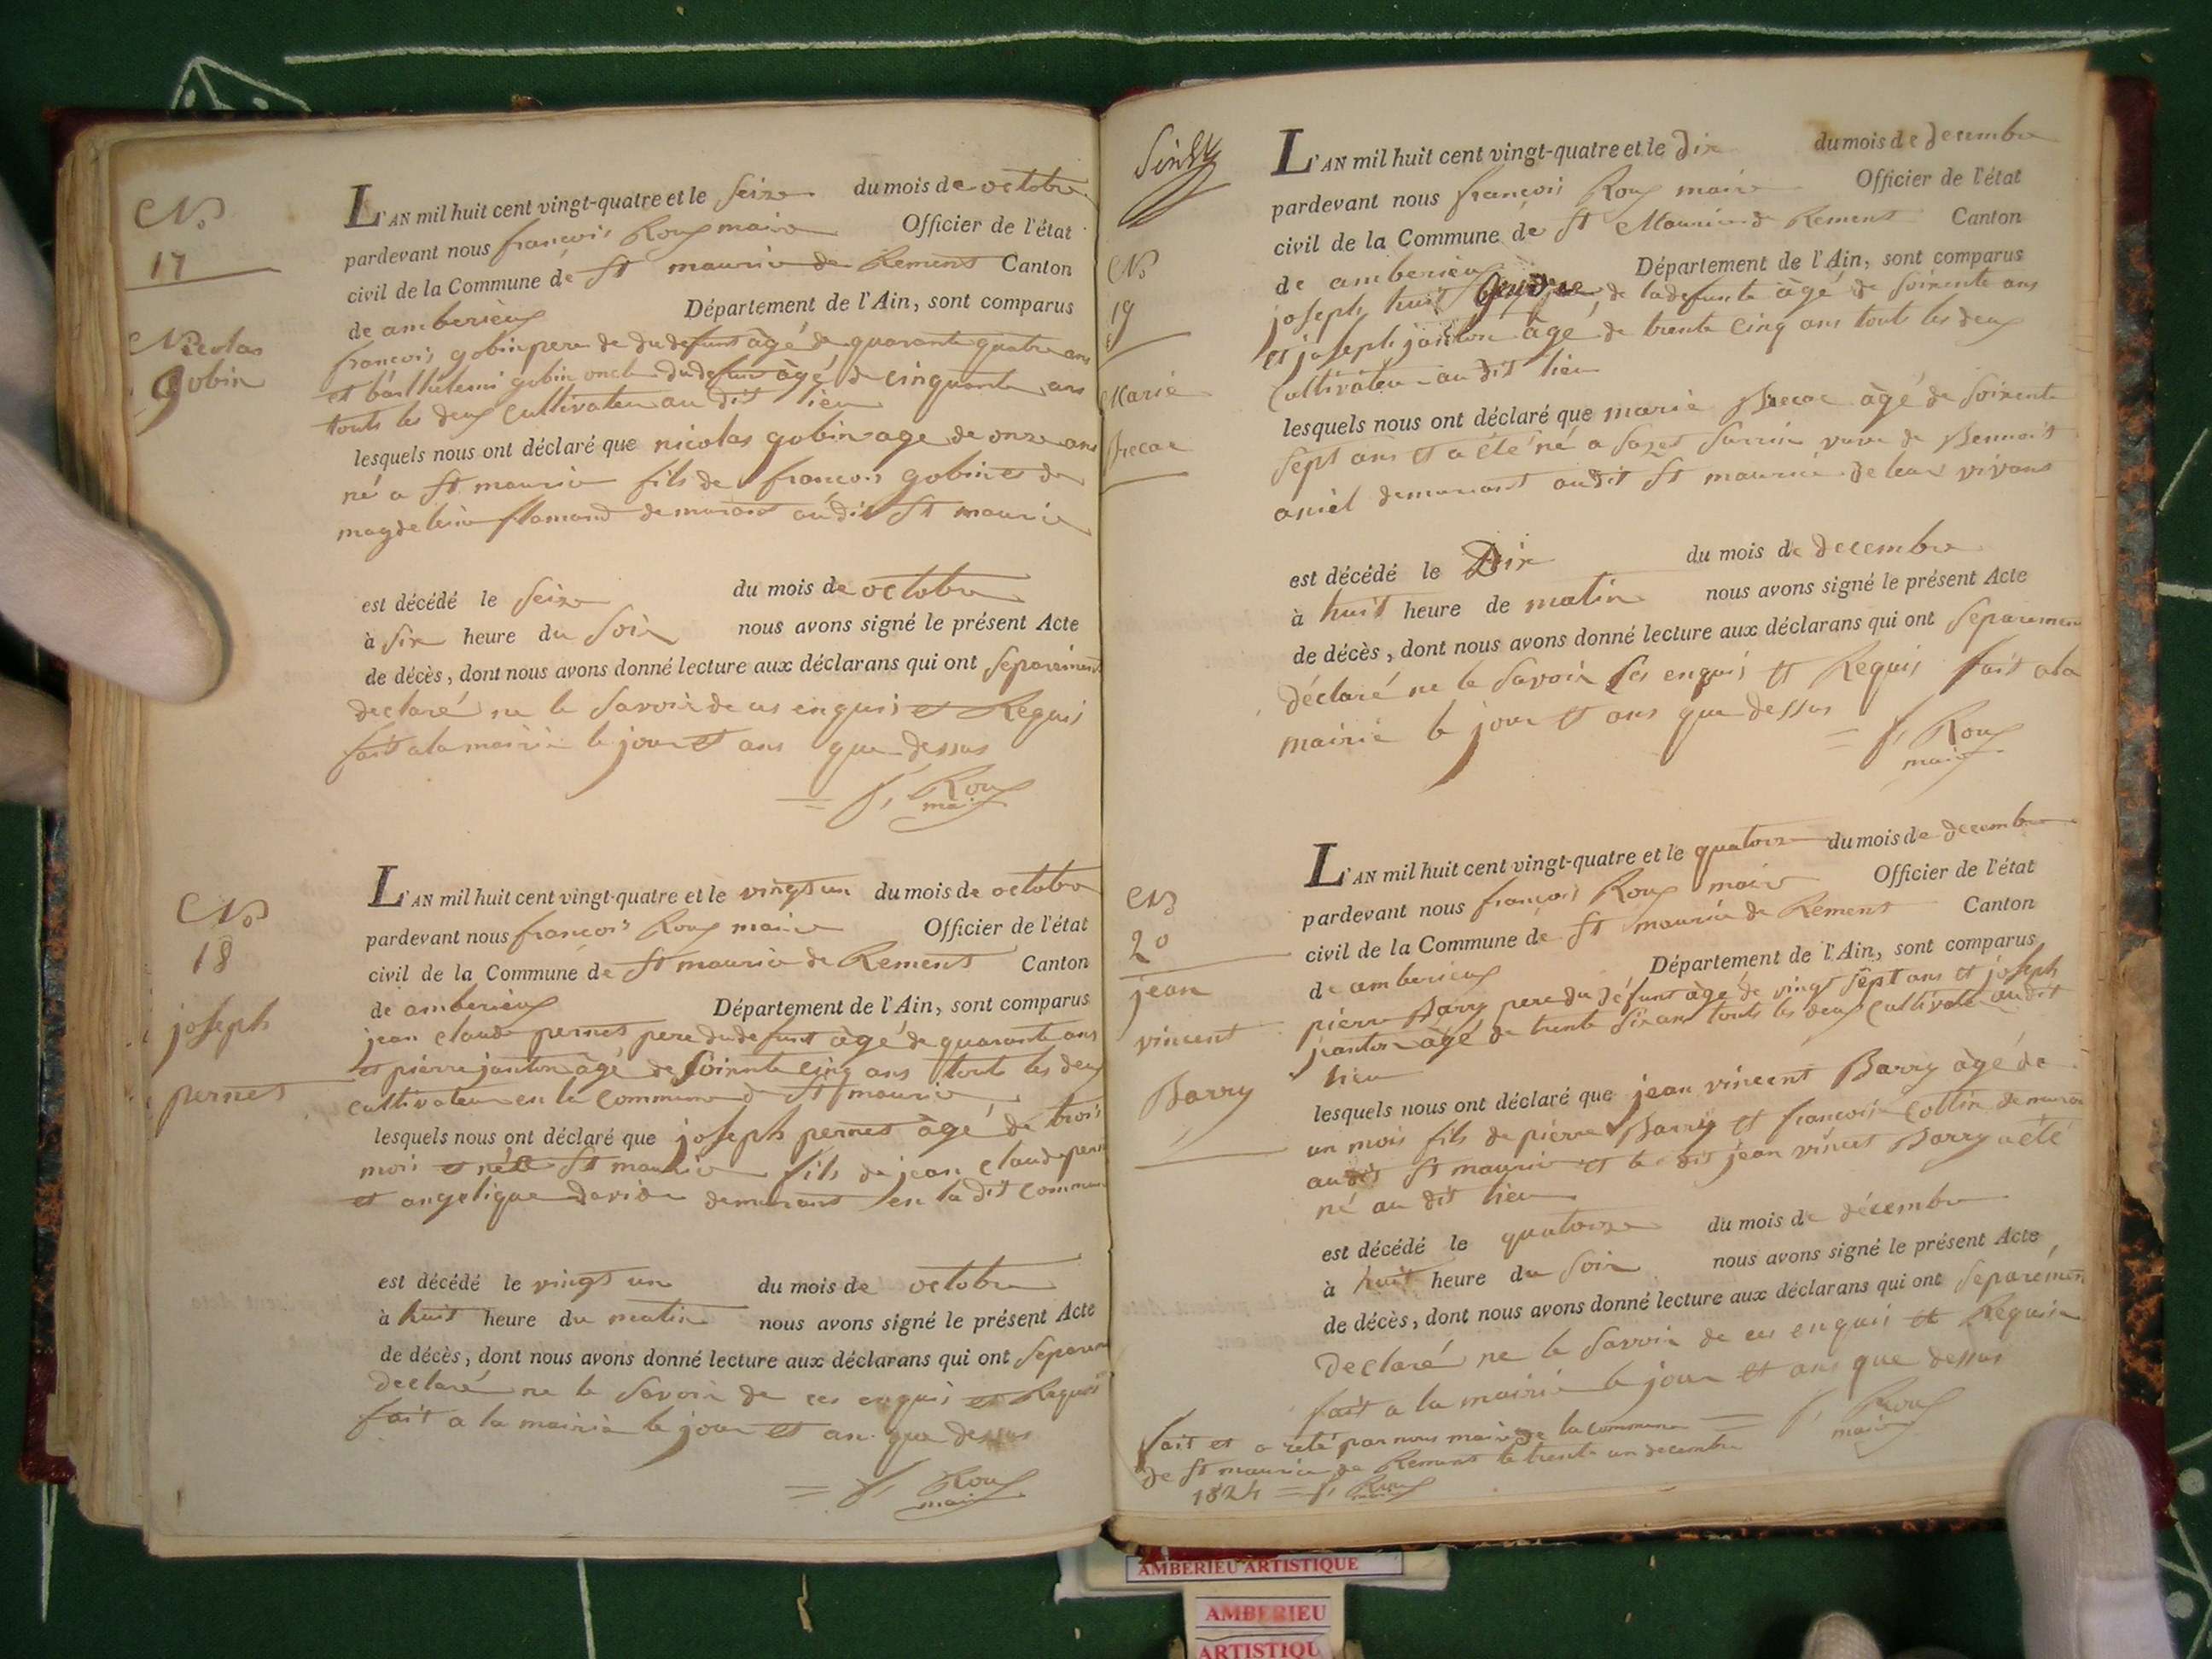 No
17
Nicolas
gobin
L'AN mil huit cent vingt-quatre et le seize du mois de octobre
pardevant nous françois Roux maire Officier de l'état
civil de la Commune de St maurice de Remens Canton
de amberieux Département de l'Ain, sont comparus
françois gobin pere de du defunt âgé de quarante quatre ans
et barthelemi gobin oncle du defunt âgé de cinquante ans
touts les deux cultivateur au dit lieu
lesquels nous ont déclaré que nicolas gobin age de onze ans
né a St maurice fils de françois gobin et de
magdeleine flamand demurant audit St maurice
est décédé le seize du mois de octobre
à six heure du soir nous avons signé le présent Acte
de décès, dont nous avons donné lecture aux déclarans qui ont separément
declaré ne le savoir de ces enquis et Requis
fait a la mairie le jour et ans que dessus
= f, Roux
maire
No
18
joseph
pernet
L'AN mil huit cent vingt-quatre et le vingt un du mois de octobre
pardevant nous françois Roux maire Officier de l'état
civil de la Commune de St maurice de Remens Canton
de amberieux Département de l'Ain, sont comparus
jean claude pernet pere du defunt âgé de quarante ans
et pierre janton âgé de soixante cinq ans tout les deux
cultivateur en la commune de St maurice
lesquels nous ont déclaré que joseph pernet âgé de trois
mois et né a St maurice fils de jean claude pernet
et angelique david demurant en la dit commune
est décédé le vingt un du mois de octobre
à huit heure du matin nous avons signé le présent Acte
de décès, dont nous avons donné lecture aux déclarans qui ont separem
declaré ne le savoir de ces enquis et Requis
fait a la mairie le jour et an que dessus
= f, Roux
maire
No
19
Marie
Brecat
L'AN mil huit cent vingt-quatre et le dix du mois de decembre
pardevant nous françois Roux maire Officier de l'état
civil de la Commune de St Maurice de Remens Canton
de amberieux Département de l'Ain, sont comparus
joseph huit de la defunte âgé de soixente ans
et joseph janton âgé de trente cinq ans touts les deux
Cultivateur au dit lieu
lesquels nous ont déclaré que marie âgé de soixente
sept ans et a été né a veuve de Bennoit
aniel demurant audit St maurice de leur vivans
est décédé le Dix du mois de decembre
à huit heure de matin nous avons signé le présent Acte
de décès, dont nous avons donné lecture aux déclarans qui ont separement
déclaré ne le savoir enquis et Requis fait a la
mairie le jour et ans que dessus
= f, Roux
maire
No
20
jean
vincent
Barry
L'AN mil huit cent vingt-quatre et le quatorze du mois de decembre
pardevant nous françois Roux maire Officier de l'état
civil de la Commune de St maurice de Remens Canton
de amberieux Département de l'Ain, sont comparus
pierre Barry pere du défunt âgé de vingt sept ans et joseph
janton âgé de trente six ans touts les deux Cultivateur audit
lieu
lesquels nous ont déclaré que jean vincent Barry âgé de
un mois fils de pierre Barry et françoise Collin demurant
audit St maurice et le dit jean vincet Barry a été
né au dit lieu
est décédé le quatorze du mois de décembre
à huit heure du soir nous avons signé le présent Acte
de décès, dont nous avons donné lecture aux déclarans qui ont separemen
Declaré ne le savoir de ces enquis et Requis
fait a la mairie le jour et ans que dessus
= f, Roux
maire
fait et a reté par nous maire de la commune
de St maurice de Remens le trente un decembre
1824 = f, Roux
maire
AMBERIEU ARTISTIQUE
AMBERIEU
ARTISTIQU